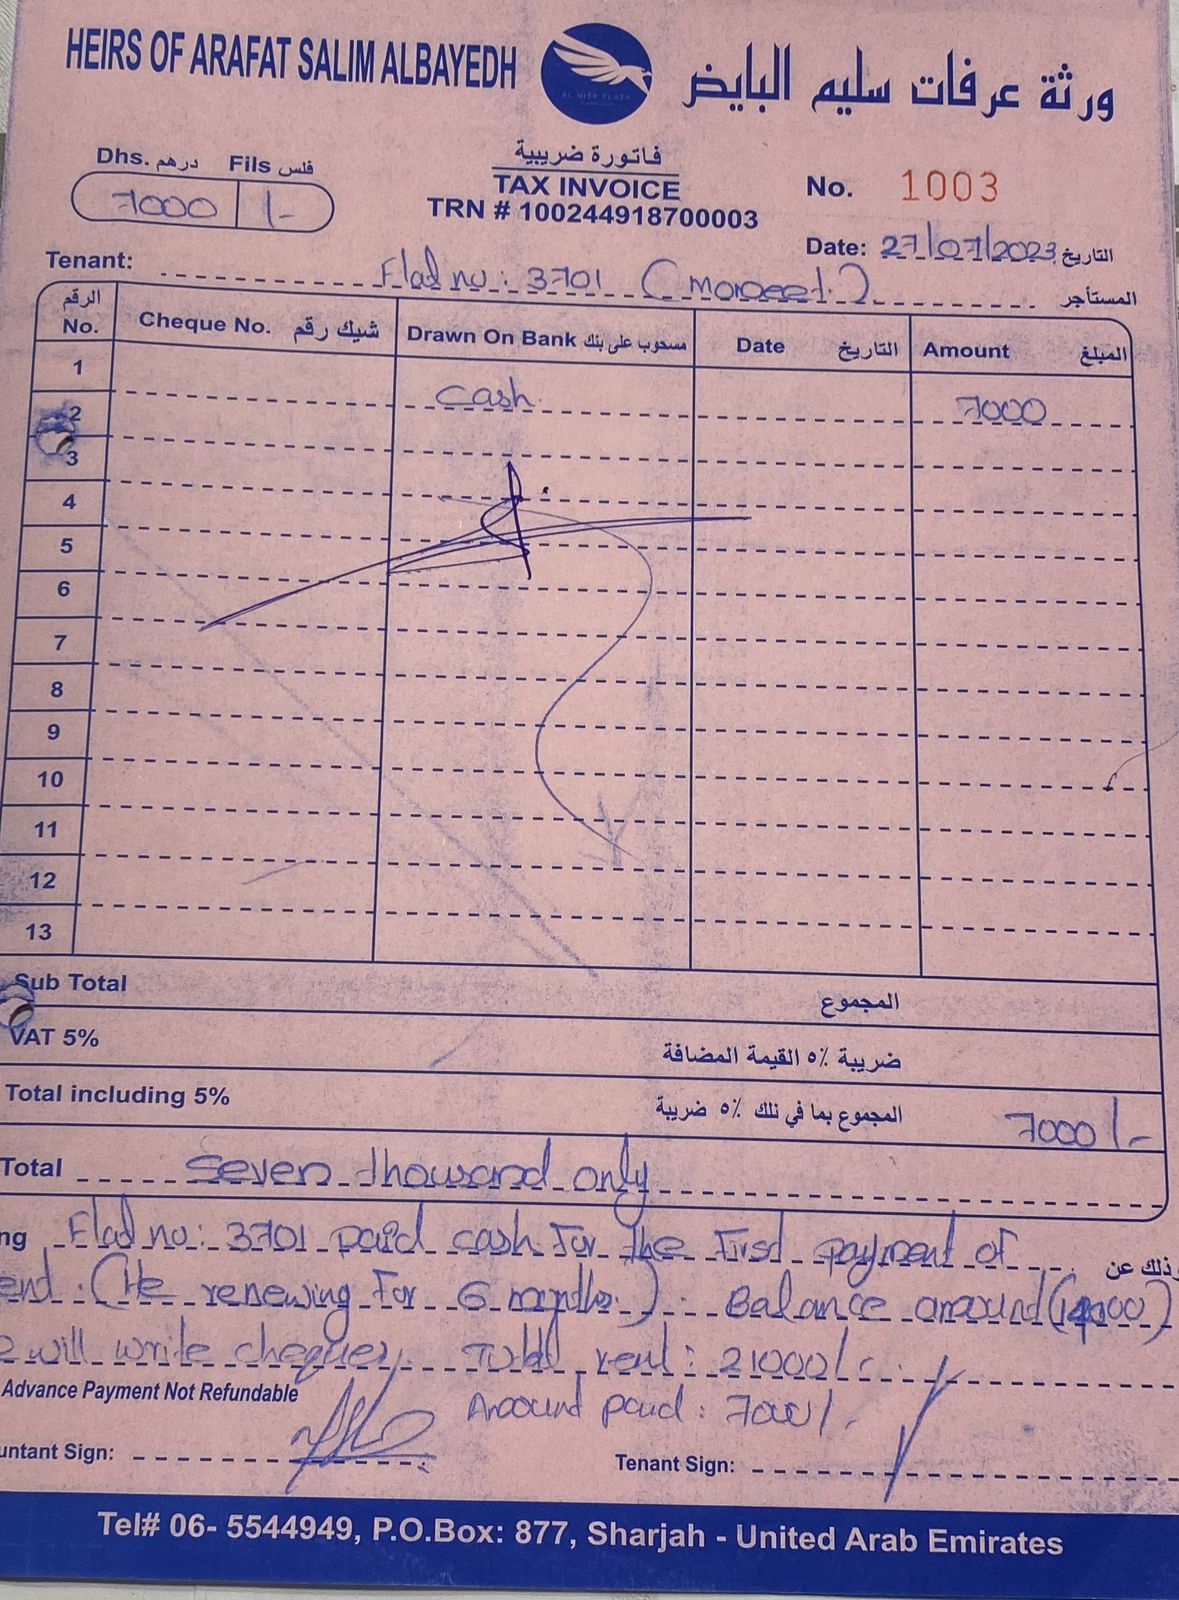 HEIRS OF ARAFAT SALIM ALBAYEDH
ورثة عرفات سليم البايض
AL NISR PLAZA
Dhs. درهم Fils فلس
7000 /-
فاتورة ضريبية
TAX INVOICE
TRN # 100244918700003
No. 1003
Date: 27/07/2023 التاريخ
Tenant: Flat no: 3701 المستأجر
الرقم No. Cheque No. شيك رقم Drawn On Bank مسحوب على بنك Date التاريخ Amount المبلغ
1 Cash 7000
2
3
4
5
6
7
8
9
10
11
12
13
Sub Total المجموع
VAT 5% ضريبة ٥٪ القيمة المضافة
Total including 5% المجموع بما في تلك ٥٪ ضريبة 7000/-
Total Seven thousand only
ng Flat no: 3701 paid cash for the first payment of وذلك عن
ent. (He renewing for 6 months). Balance amount (14000)
will write cheques. Total rent: 21000/-
Advance Payment Not Refundable
Amount paid: 7000/-
untant Sign: Tenant Sign:
Tel# 06- 5544949, P.O.Box: 877, Sharjah - United Arab Emirates